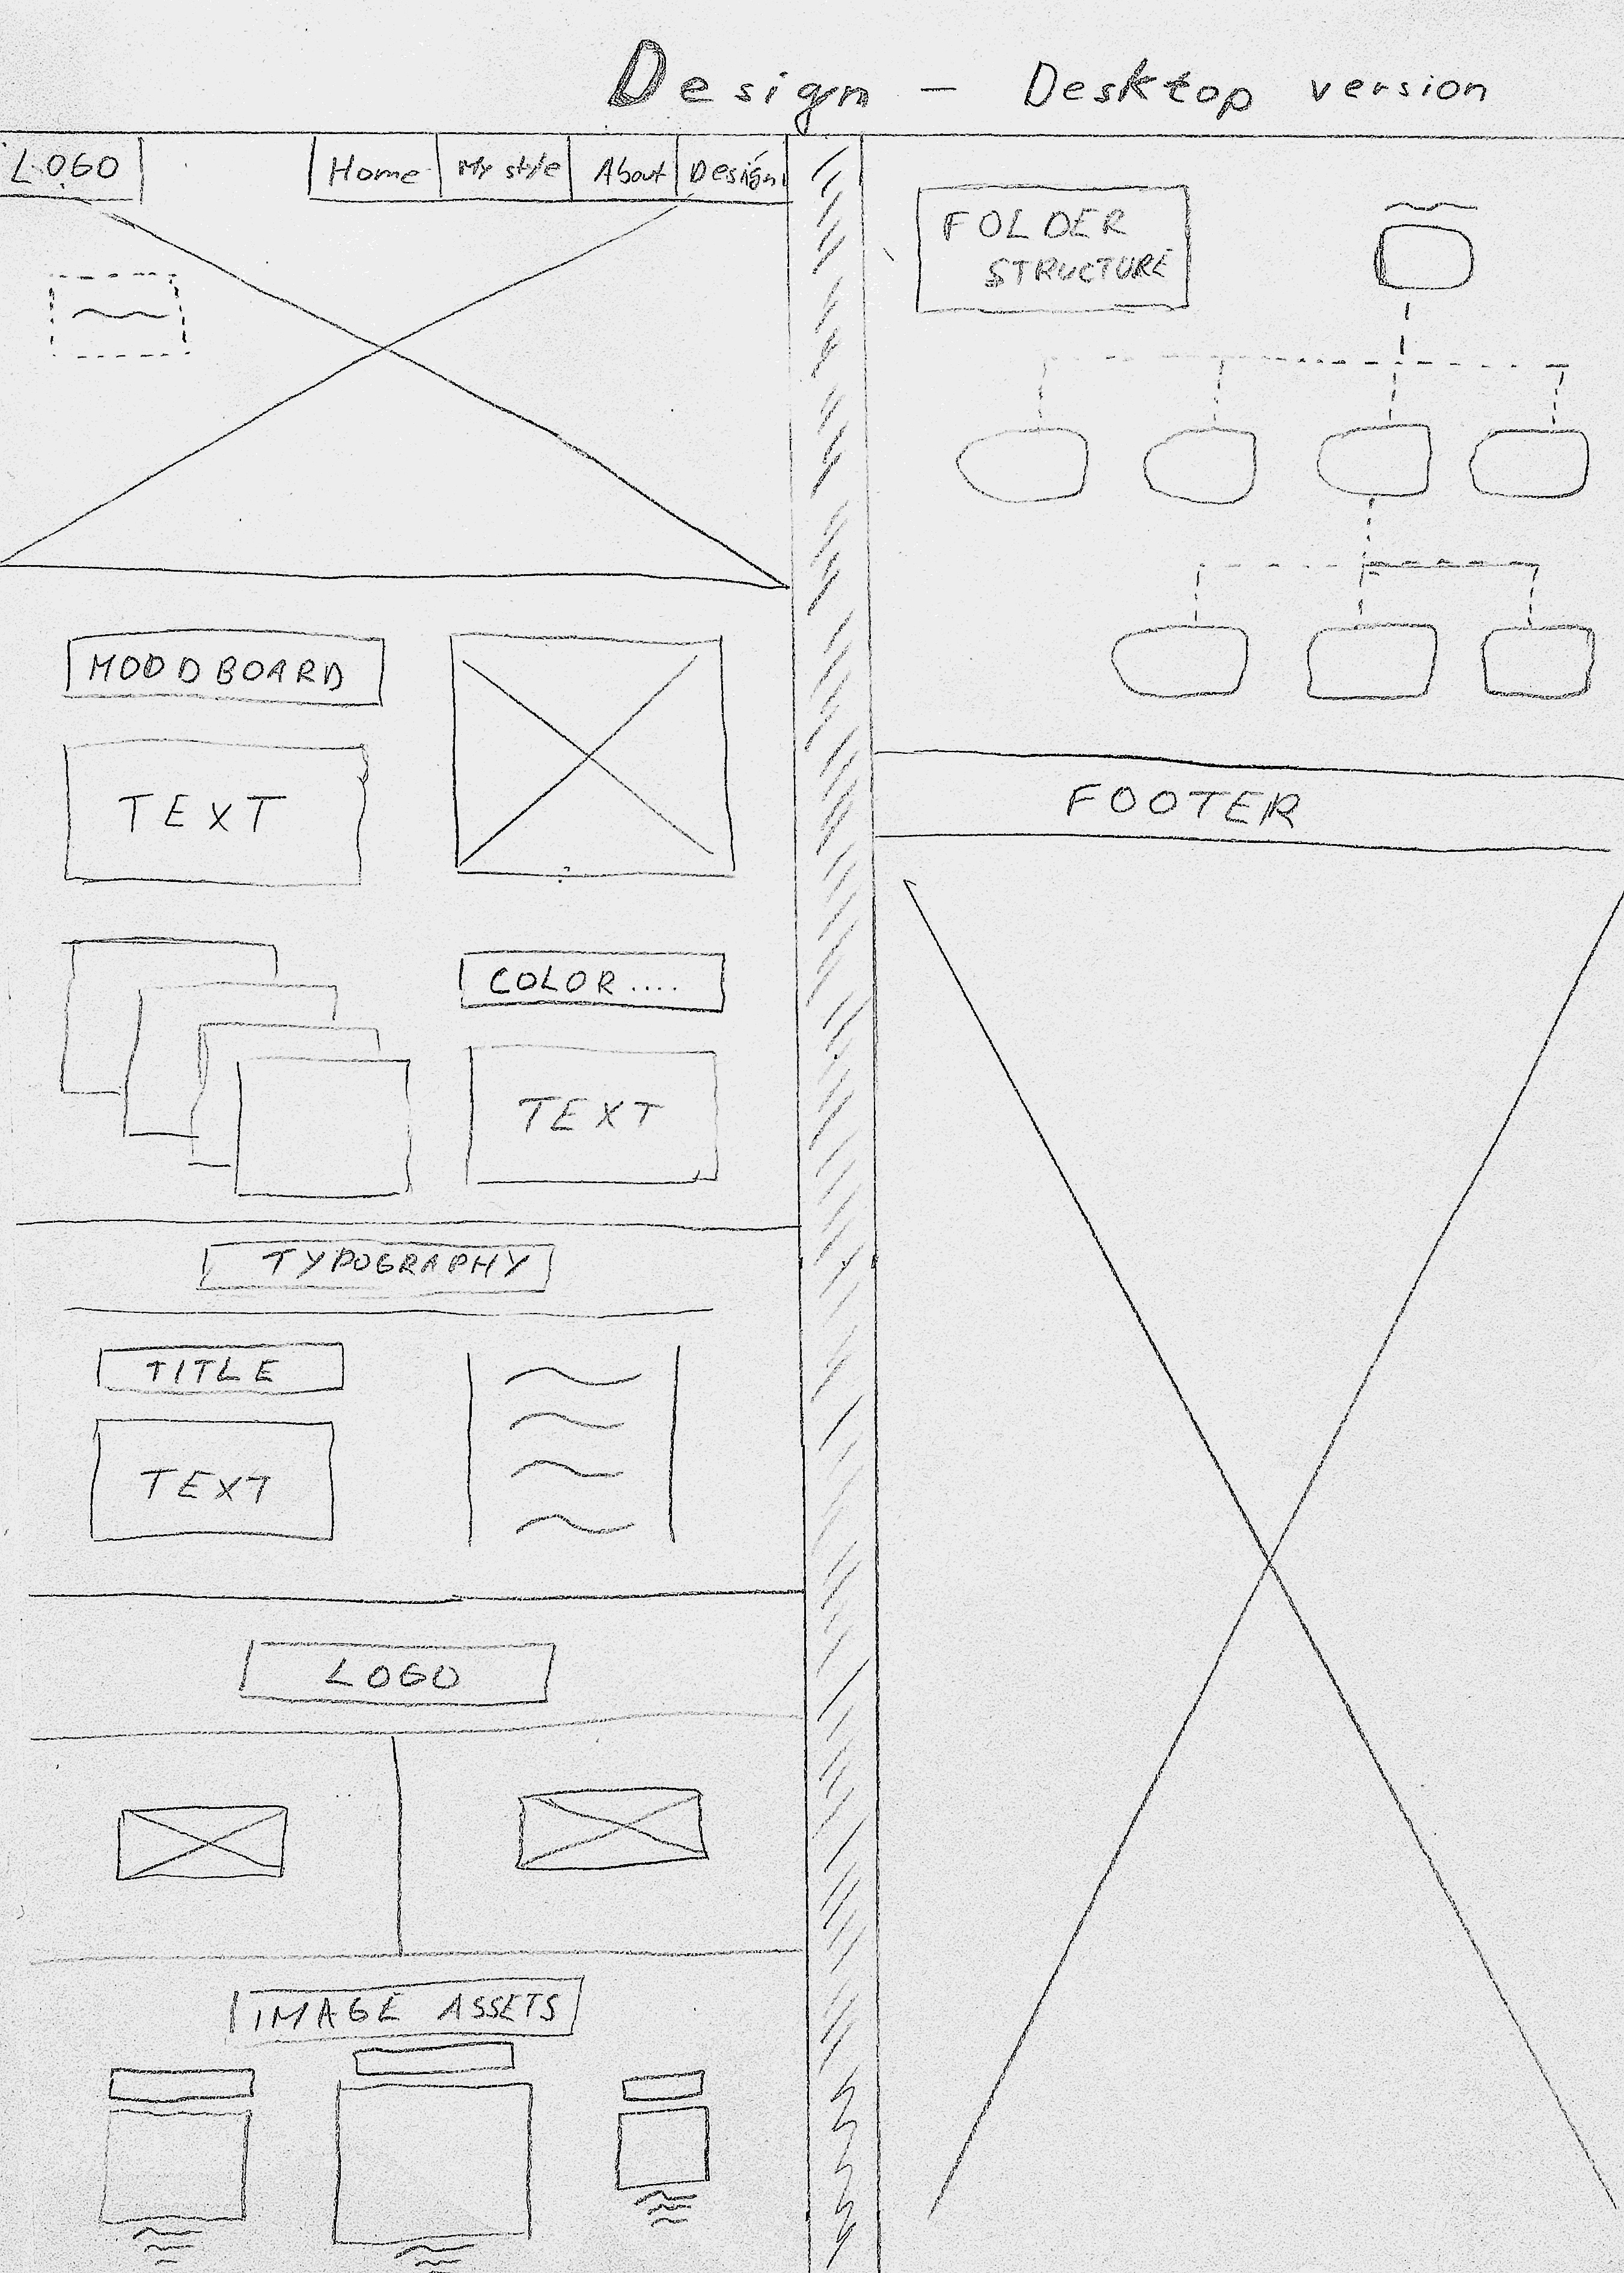 Design - Desktop version
LOGO
Home
My style
About
Design
MOODBOARD
TEXT
COLOR....
TEXT
TYPOGRAPHY
TITLE
TEXT
LOGO
IMAGE ASSETS
FOLDER
STRUCTURE
FOOTER